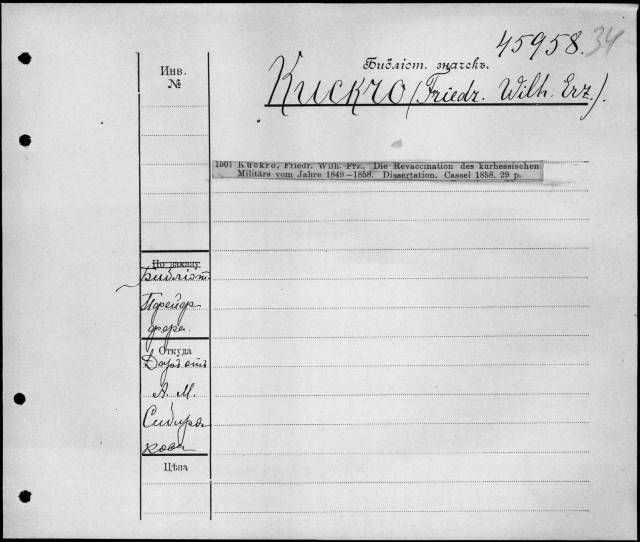 45958. 34
Библіот. значекъ.
Kuckro (Friedr. Wilh. Erz.).
Инв.
№
1501 Kuckro, Friedr. Wilh. Frz., Die Revaccination des kurhessischen
Militärs vom Jahre 1849–1858. Dissertation. Cassel 1858. 29 p.
По заказу
Библіот.
Пфейф
фера.
Откуда
Даръ отъ
А. М.
Сибиря-
кова
Цѣна